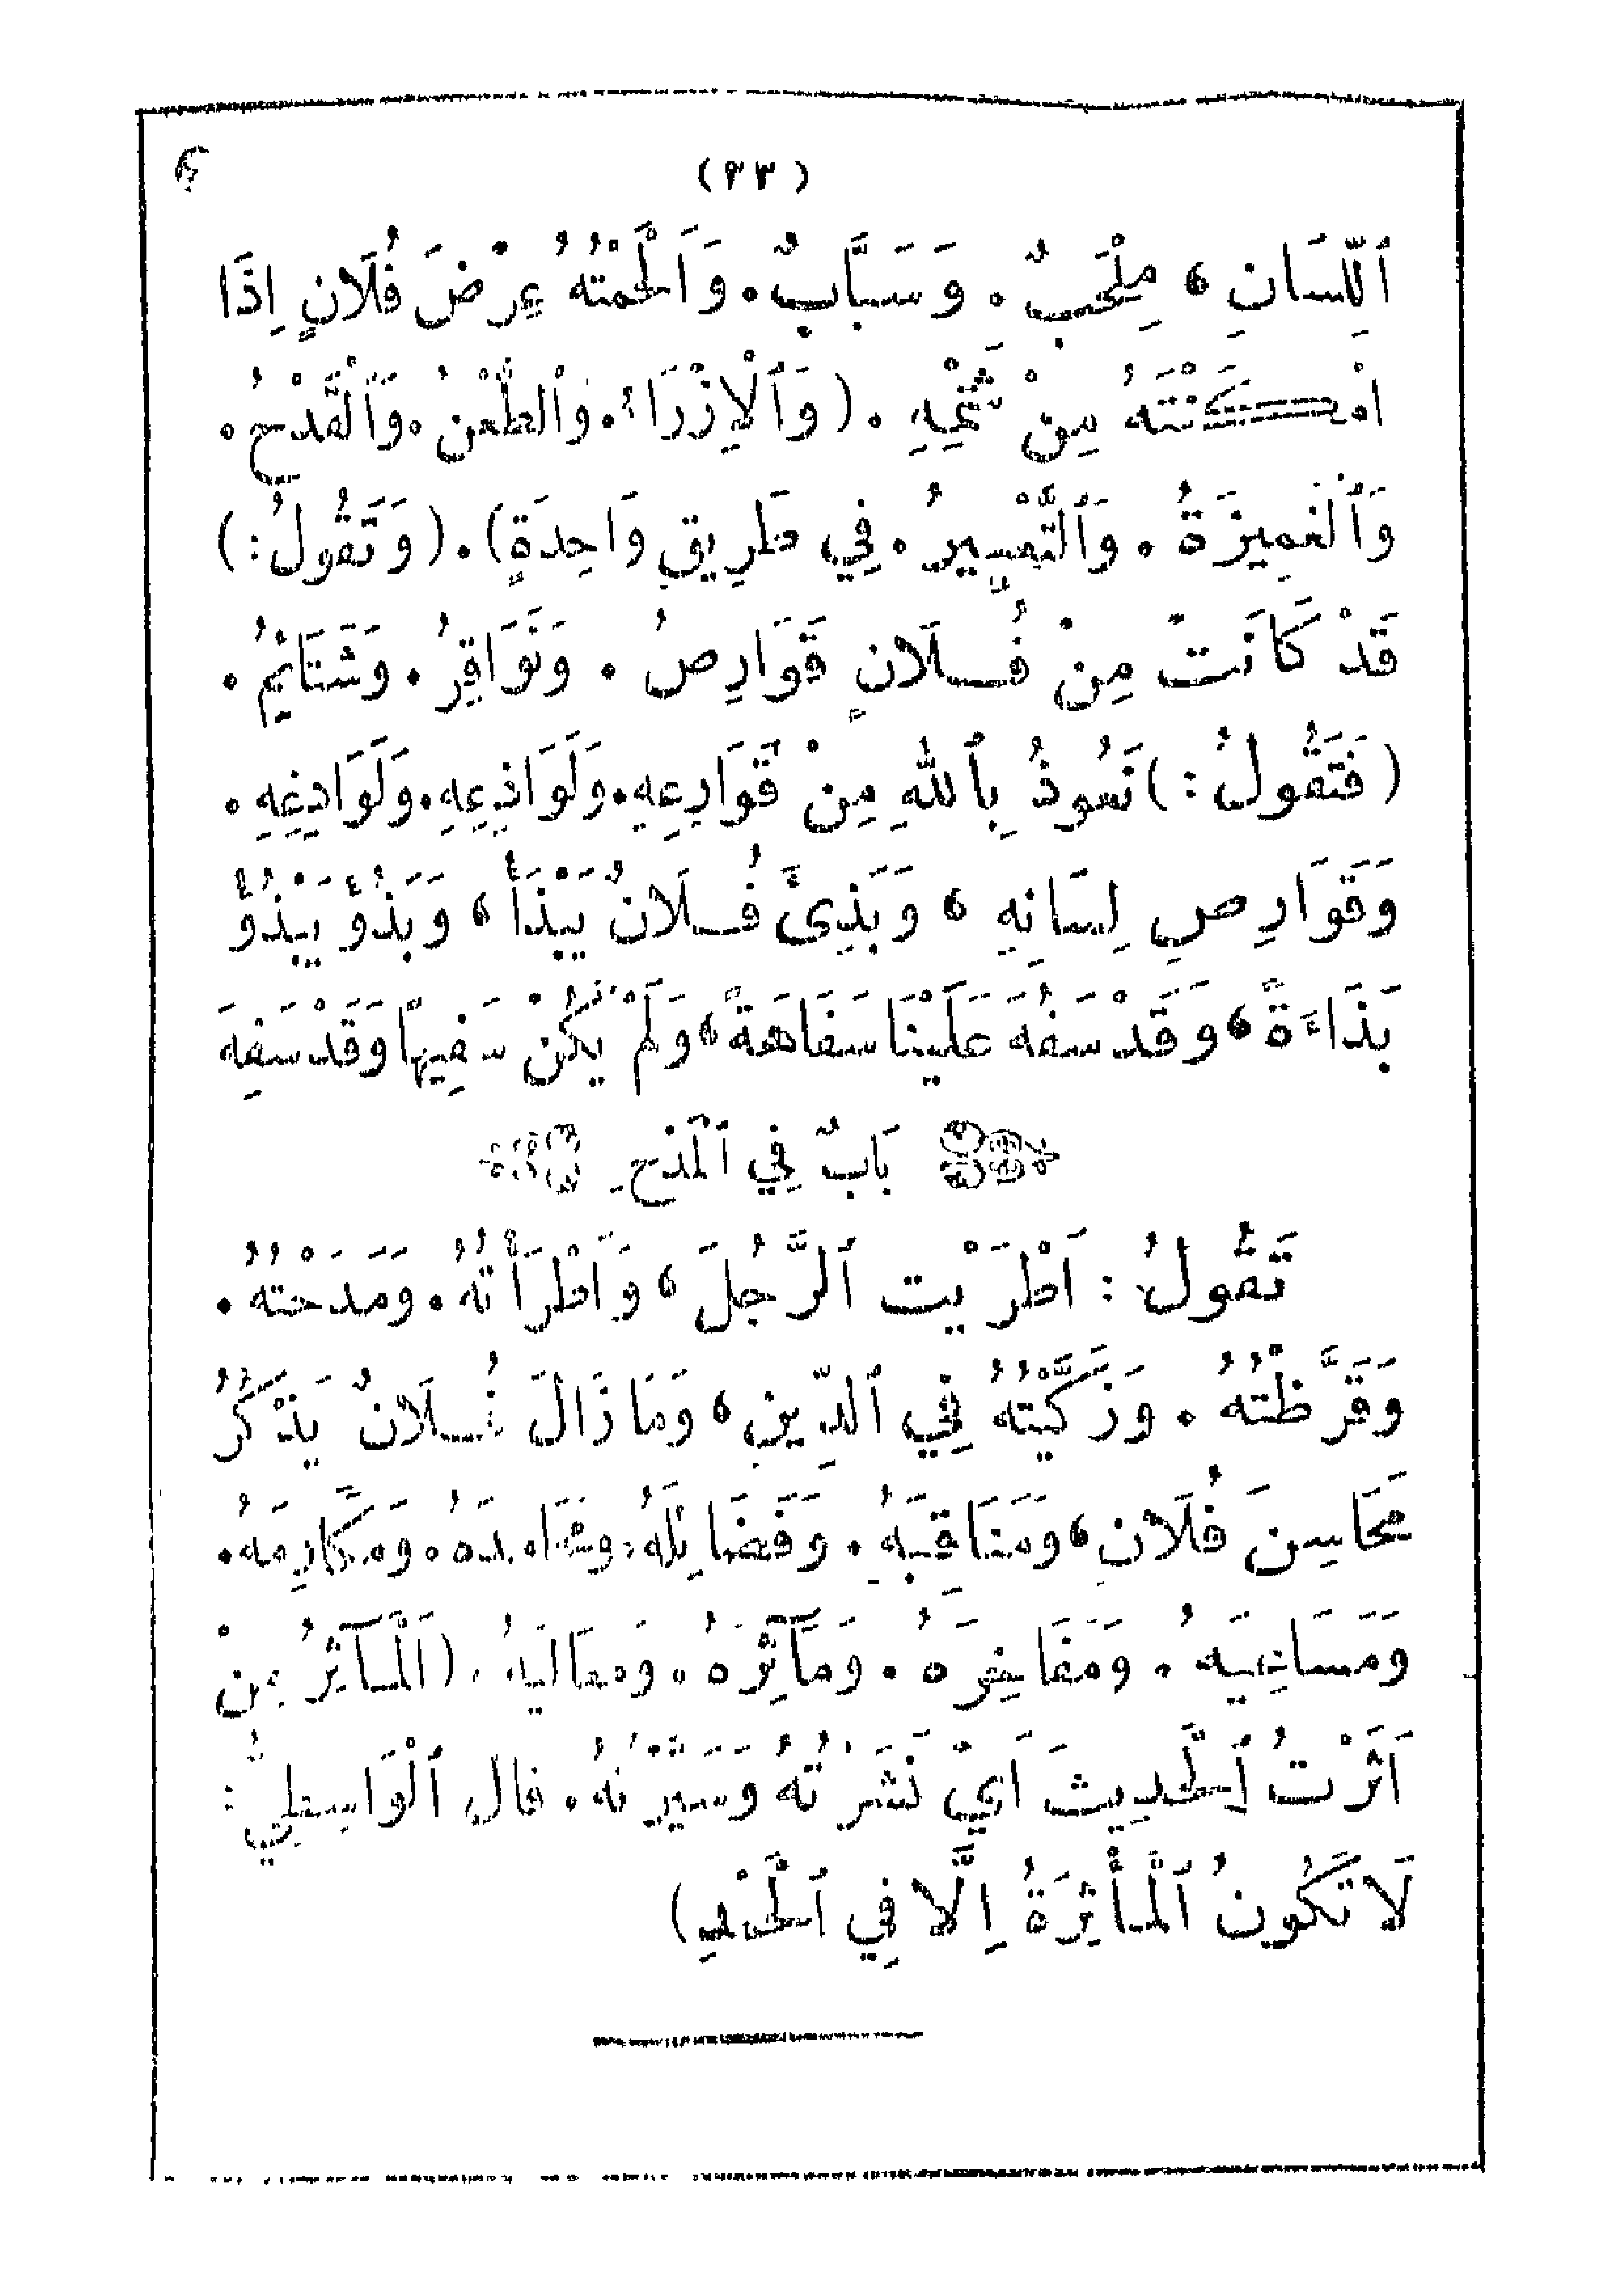 (٢٣)
ٱللِّسَانِ، مِلْحَبٌ. وَسَبَّابٌ. وَأَلْحَمْتُهُ عِرْضَ فُلَانٍ إِذَا
امْكَنْتَهُ مِنْ شَتْمِهِ. (وَٱلْاِزْرَاءُ. وَٱلطَّعْنُ. وَٱلْقَدْحُ.
وَٱلْغَمِيزَةُ. وَٱلتَّقْصِيرُ. فِي طَرِيقٍ وَاحِدَةٍ). (وَتَقُولُ:)
قَدْ كَانَتْ مِنْ فُلَانٍ قَوَارِصُ. وَنَوَاقِرُ. وَشَتَائِمُ.
(فَتَقُولُ:) نَعُوذُ بِٱللهِ مِنْ قَوَارِعِهِ. وَلَوَاذِعِهِ. وَلَوَادِغِهِ.
وَقَوَارِصِ لِسَانِهِ، وَبَذِىَٔ فُلَانٌ يَبْذَأُ، وَبَذُؤَ يَبْذُؤُ
بَذَاءَةً، وَقَدْ سَفُهَ عَلَيْنَا سَفَاهَةً، وَلَمْ يَكُنْ سَفِيهًا وَقَدْ سَفِهَ
بَابٌ فِي ٱلْمَدْحِ
تَقُولُ: اَطْرَيْتُ ٱلرَّجُلَ، وَاَطْرَأْتُهُ. وَمَدَحْتُهُ.
وَقَرَّظْتُهُ. وَزَكَّيْتُهُ فِي ٱلدِّينِ، وَمَا زَالَ فُلَانٌ يَذْكُرُ
مَحَاسِنَ فُلَانٍ، وَمَنَاقِبَهُ. وَفَضَائِلَهُ. وَمَحَامِدَهُ. وَمَكَارِمَهُ.
وَمَسَاعِيَهُ. وَمَفَاخِرَهُ. وَمَآثِرَهُ. وَمَعَالِيَهُ. (اَلْمَآثِرُ مِنْ
اَثَرْتُ ٱلْحَدِيثَ اَيْ نَشَرْتُهُ وَسَيَّرْتُهُ. قَالَ ٱلْوَاسِطِيُّ:
لَا تَكُونُ ٱلْمَأْثِرَةُ اِلَّا فِي ٱلْخَيْرِ)